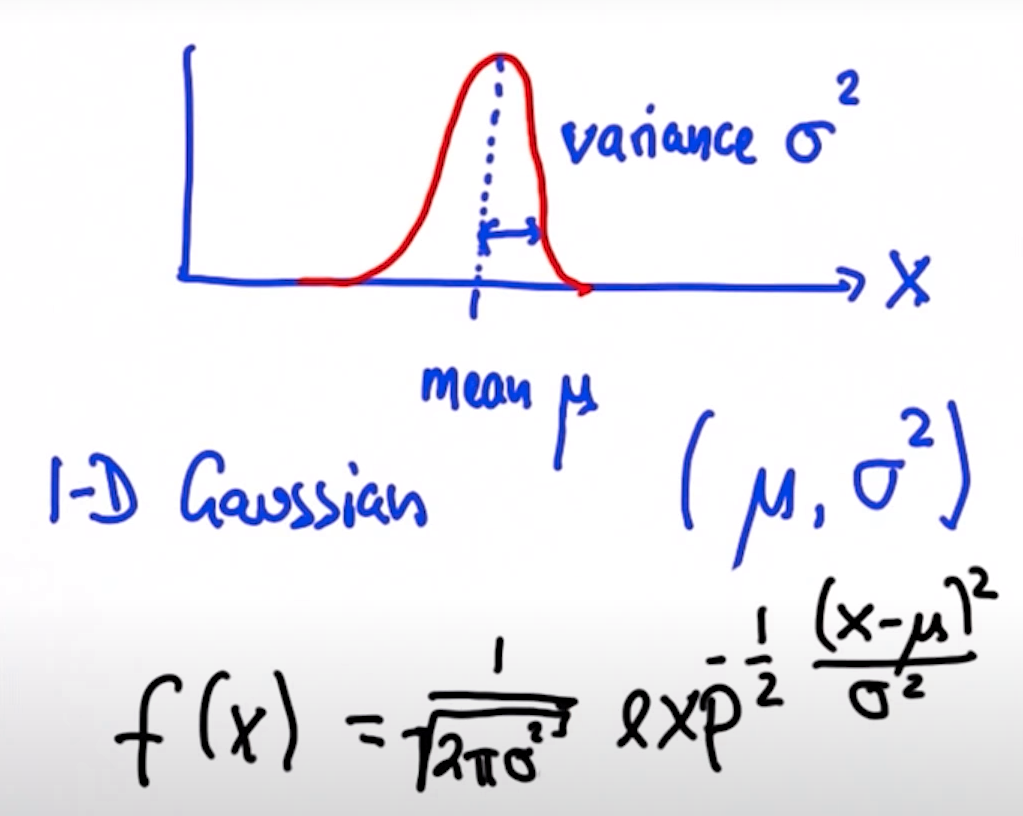 variance σ²
X
mean μ
1-D Gaussian (μ, σ²)
f(x) = 1/√(2πσ²) exp^(-1/2 (x-μ)²/σ²)